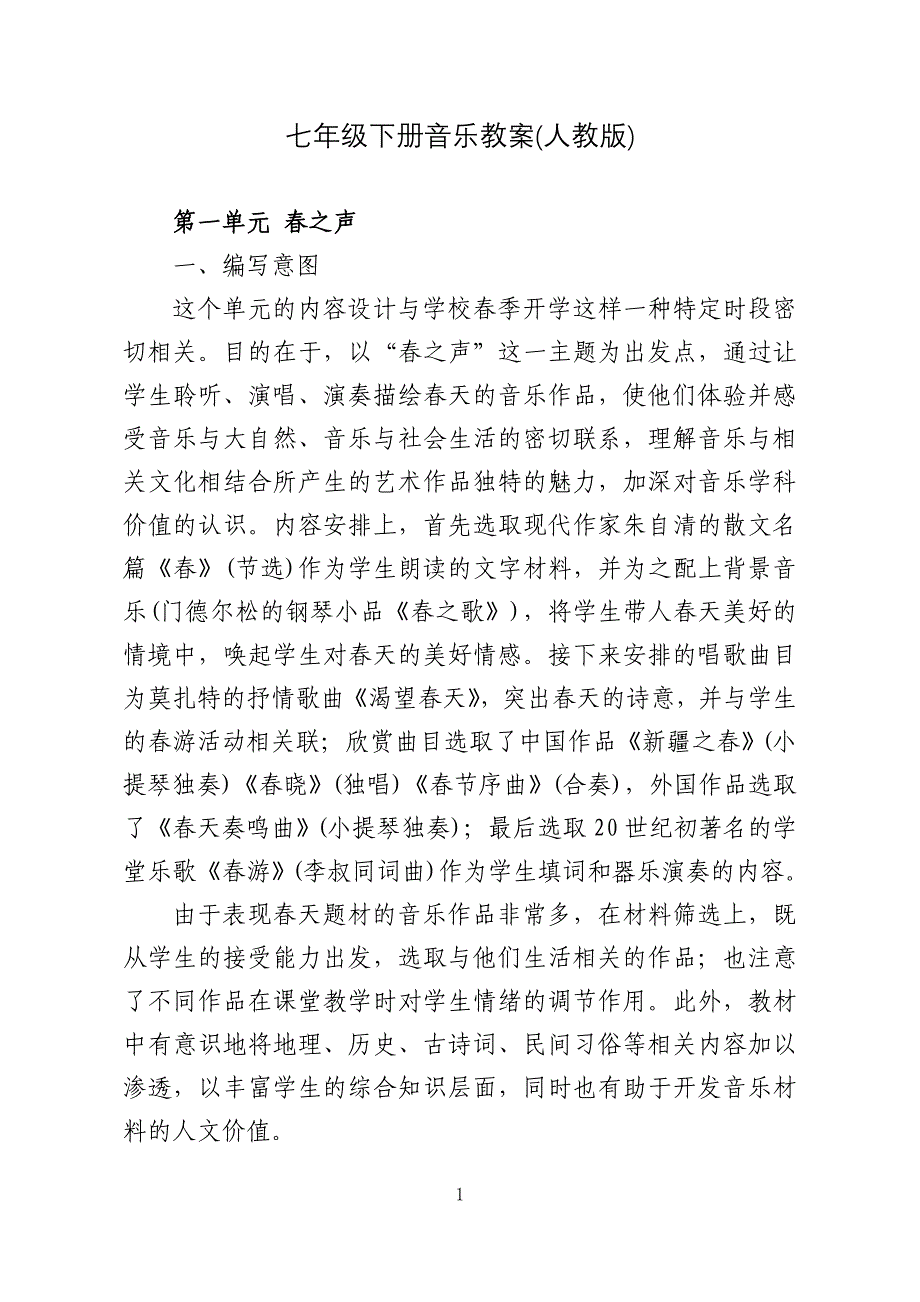 七年级下册音乐教案(人教版)
第一单元 春之声
一、编写意图
这个单元的内容设计与学校春季开学这样一种特定时段密
切相关。目的在于，以“春之声”这一主题为出发点，通过让
学生聆听、演唱、演奏描绘春天的音乐作品，使他们体验并感
受音乐与大自然、音乐与社会生活的密切联系，理解音乐与相
关文化相结合所产生的艺术作品独特的魅力，加深对音乐学科
价值的认识。内容安排上，首先选取现代作家朱自清的散文名
篇《春》(节选)作为学生朗读的文字材料，并为之配上背景音
乐(门德尔松的钢琴小品《春之歌》)，将学生带人春天美好的
情境中，唤起学生对春天的美好情感。接下来安排的唱歌曲目
为莫扎特的抒情歌曲《渴望春天》，突出春天的诗意，并与学生
的春游活动相关联；欣赏曲目选取了中国作品《新疆之春》(小
提琴独奏)《春晓》(独唱)《春节序曲》(合奏)，外国作品选取
了《春天奏鸣曲》(小提琴独奏)；最后选取 20 世纪初著名的学
堂乐歌《春游》(李叔同词曲)作为学生填词和器乐演奏的内容。
由于表现春天题材的音乐作品非常多，在材料筛选上，既
从学生的接受能力出发，选取与他们生活相关的作品；也注意
了不同作品在课堂教学时对学生情绪的调节作用。此外，教材
中有意识地将地理、历史、古诗词、民间习俗等相关内容加以
渗透，以丰富学生的综合知识层面，同时也有助于开发音乐材
料的人文价值。
1